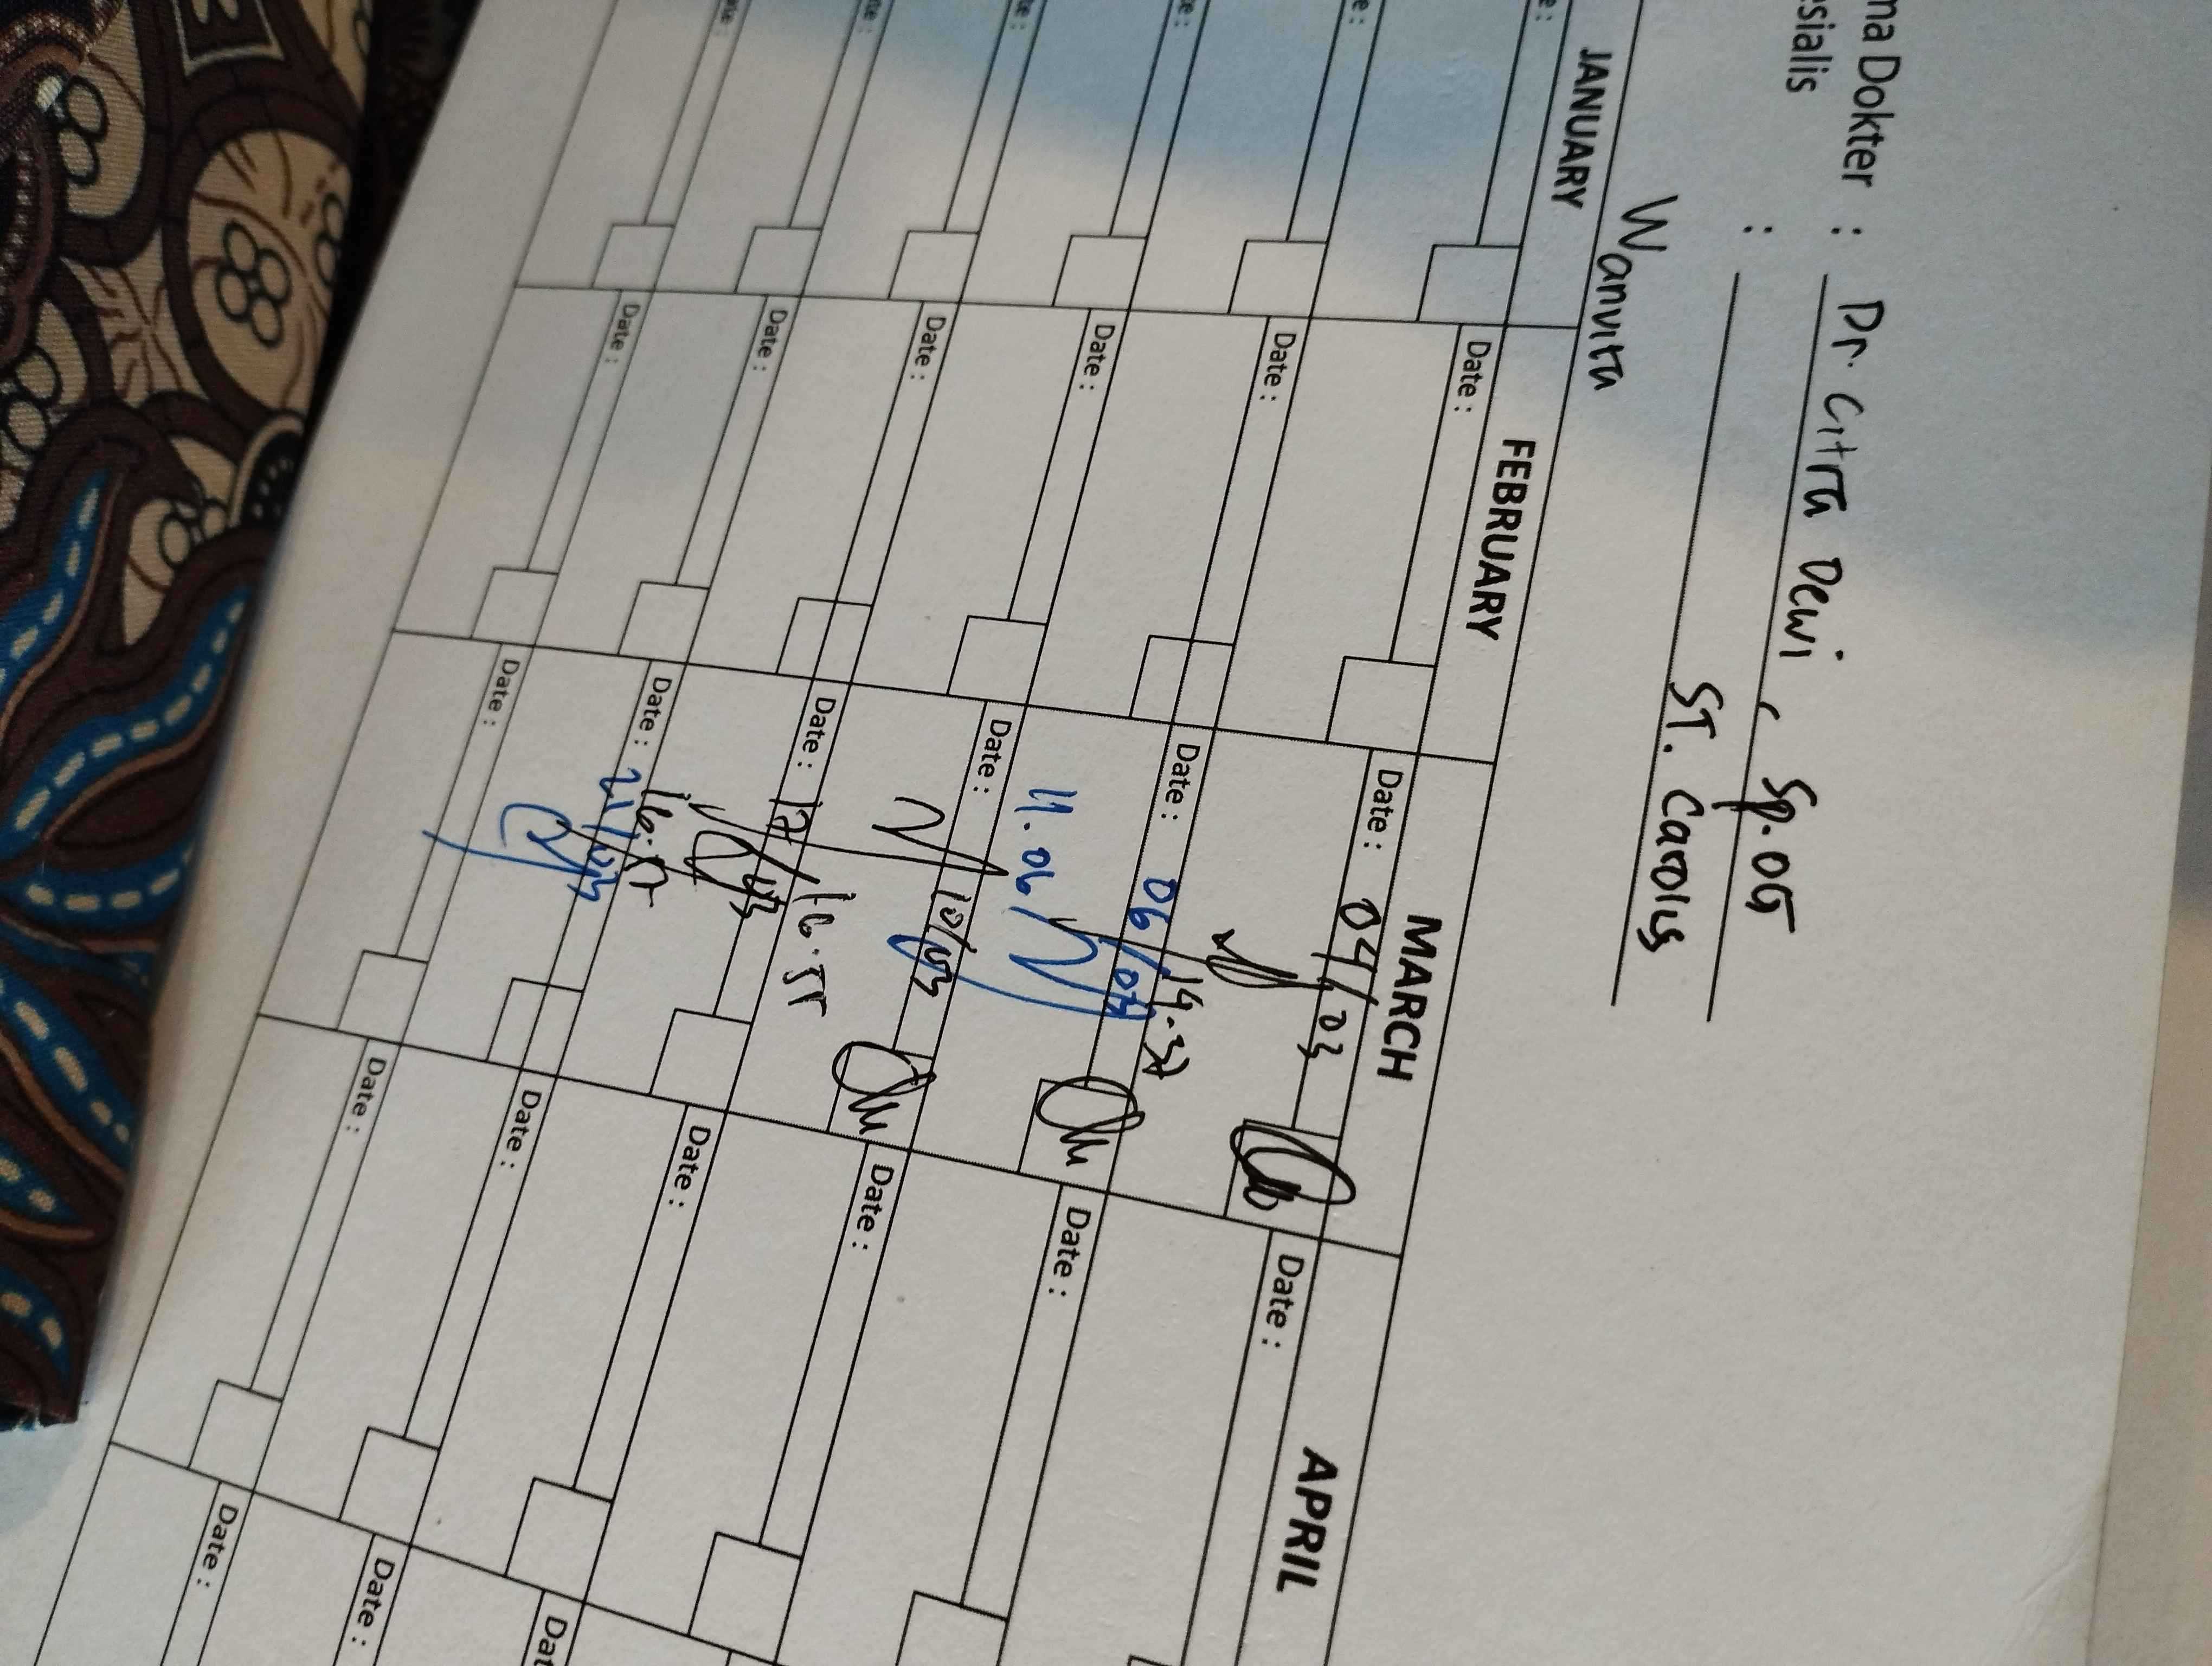 ma Dokter : Dr. Citra Dewi, Sp.OG
esialis : ST. Carolus
Wanvita
JANUARY FEBRUARY MARCH APRIL
Date : Date : 04/03 Date :
14.37
Date : Date : 06/03 Date :
11.06
Date : Date : 10/03 Date :
16.55
Date : Date : 17/03 Date :
16.57
Date : Date : 21/03 Date :
Date : Date : Date :
Date : Date : Dat